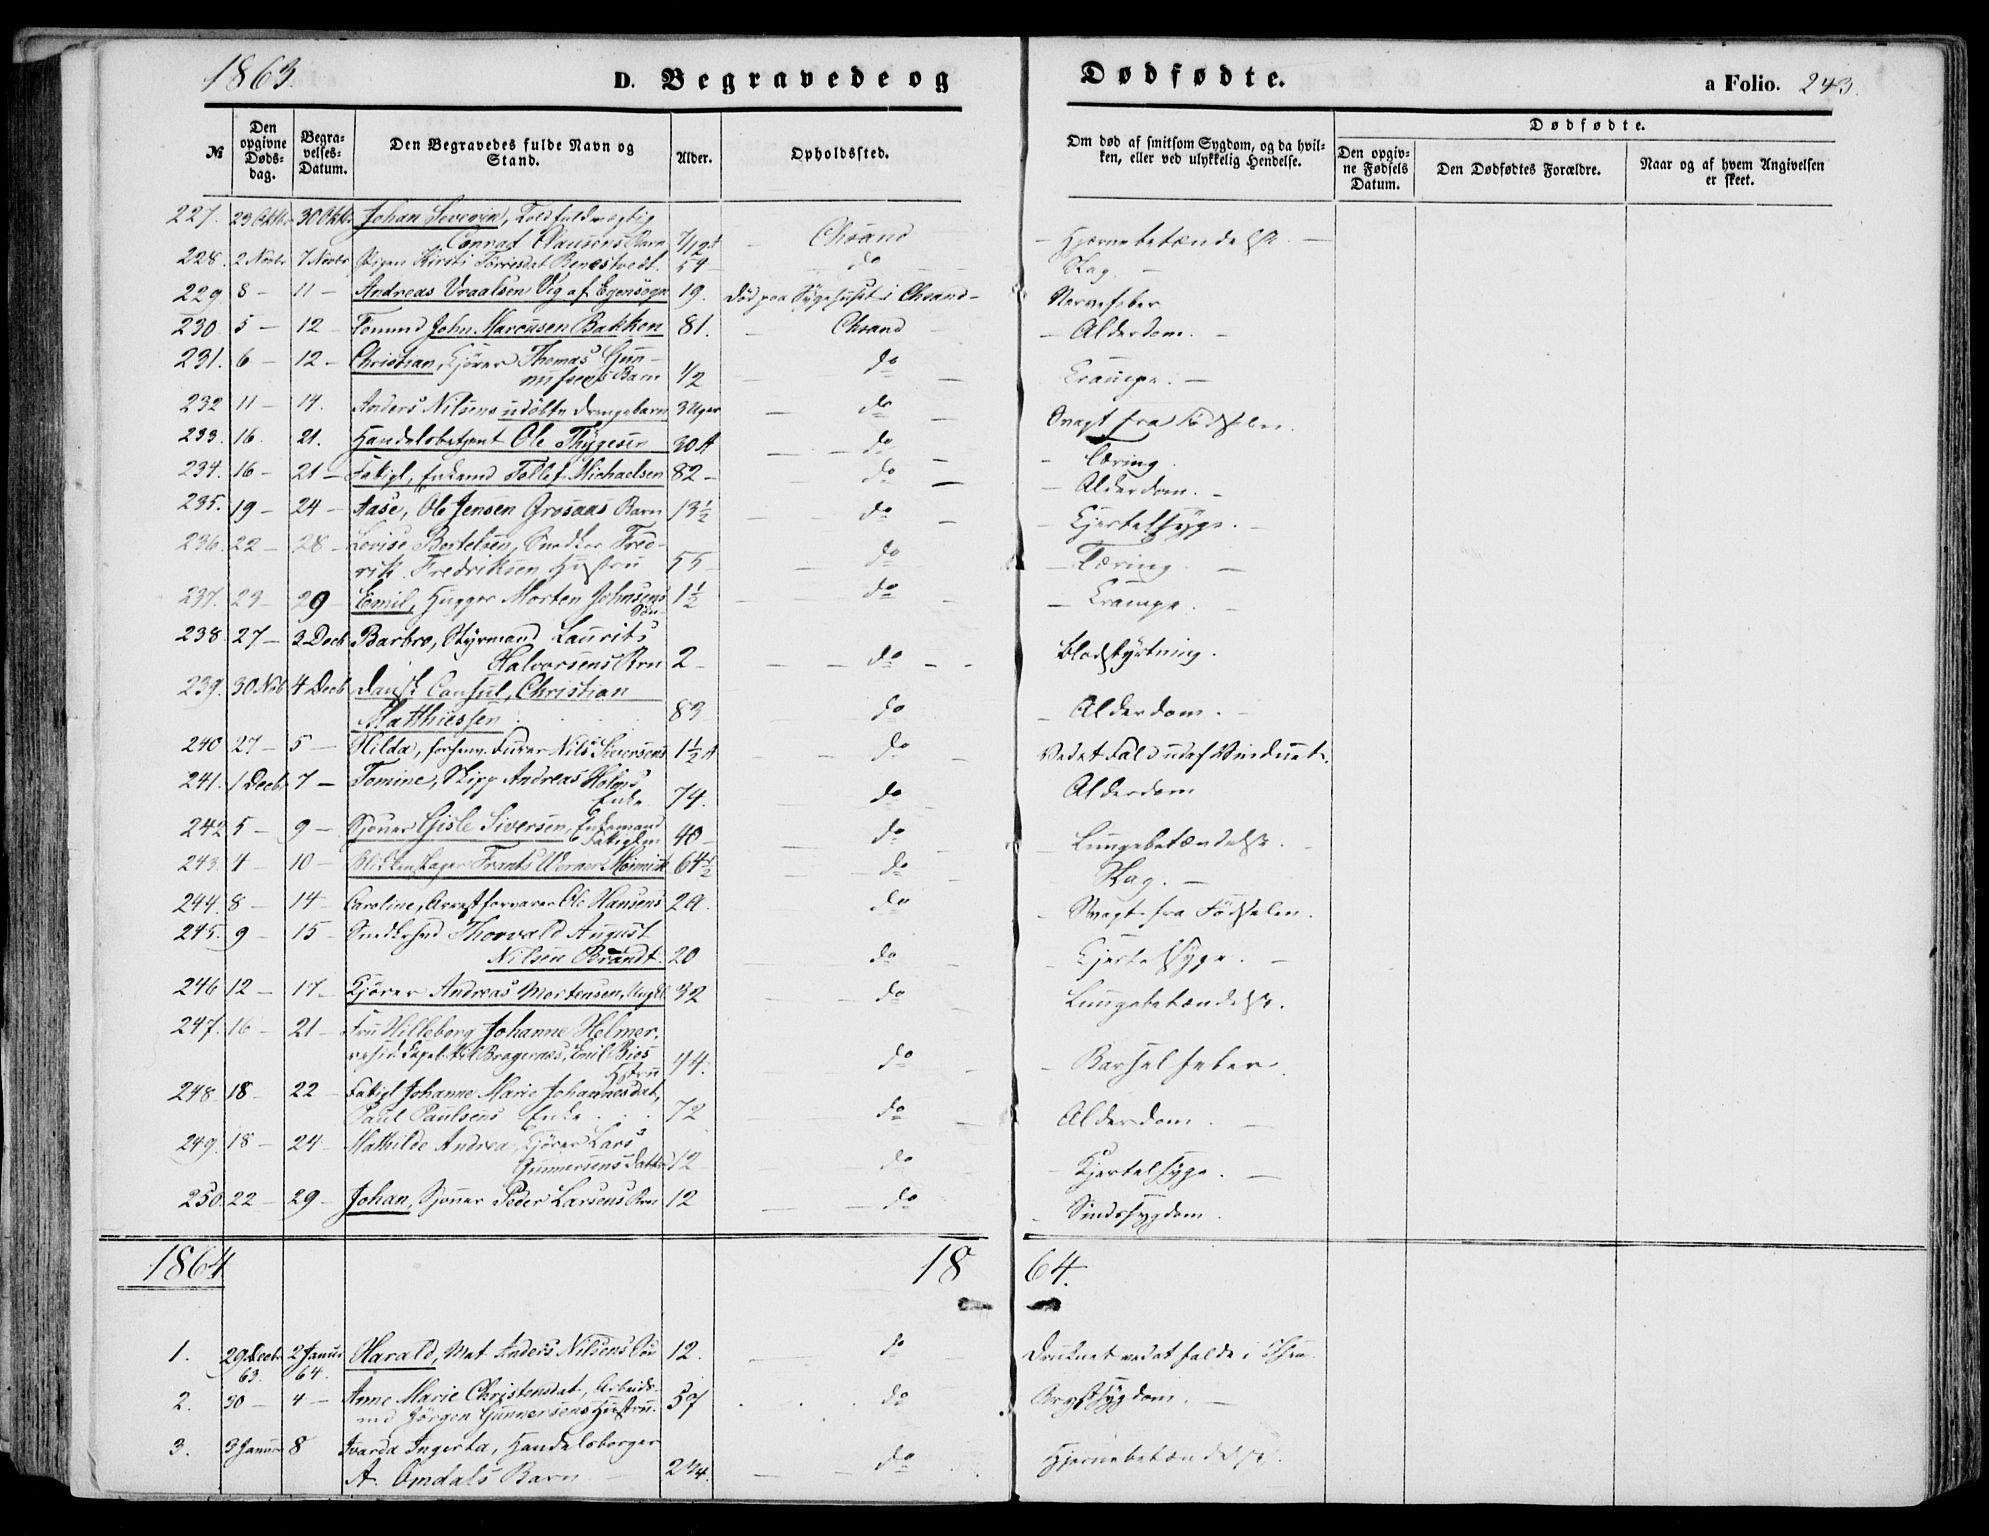 1863.
D. Begravede og Dødfødte.
a Folio. 243.
№
Den opgivne Døds-dag.
Begra-velses-Datum.
Den Begravedes fulde Navn og Stand.
Alder.
Opholdssted.
Om død af smitsom Sygdom, og da hvil-ken, eller ved ulykkelig Hendelse.
Dødfødte.
Den opgiv-ne Fødsels Datum.
Den Dødfødtes Forældre.
Naar og af hvem Angivelsen er skeet.
227. 23 Oktbr 30 Oktbr Johan Severin, Toldfuldmægtig
Conrad Clausens Barn 7/12 Chsand Hjernebetændelse. –
228. 2 Novbr 7 Novbr Pigen Kirsti Torrisdat Benestvedt. 54 – do Slag. –
229 8 – 11 – Andreas Vraalsen Vig af Egensogn 19. Død paa Sygehuset i Chsand – Nervefeber
230 5 – 12 – John Marcusen Bakken 81. Chsand – Alderdom. –
231. 6 – 12 – Christian, Kjører Thomas Gun-
nufsens Barn 1/2 – do – Krampe. –
232 11 – 14. Anders Nilsens udøbte Drengebarn 3 Uger – do Svagt fra Fødselen.
233. 16. 21. Handelsbetjent Ole Thygesen 30 A – do – Tæring.
234. 16 – 21 – Fatigl, Enkemd Tollef Michaelsen 82 – do – Alderdom. –
235. 19 – 24 – Aase, Ole Jensen Grosaas Barn 13 1/2 – do – Kjertelsyge. –
236. 22 – 28 – Lovise Bertelsen, Snedker Fred-
rik Fredriksen Hustru 55 – do – Tæring. –
237. 23 – 29 Emil, Hugger Morten Johnsens
Søn 1 1/2 – do – Krampe. –
238. 27 – 3 Decb Barbro, Styrmand Laurits
Halvorsens Brn 2 – do – Blodstyrtning.
239. 30 Novb 4 Decb Dansk Consul, Christian
Matthiessen 83 do – Alderdom. –
240 27 – 5 – Hilda, Nils Siversens 1 1/2 A – do – Vedet Fald ud af Vinduet.
241. 1 Decb 7 – Tomine, Skipp Andreas Holms
Enke 74. – do Alderdom
242 5 – 9 – Sjømd Gisle Siversen, Enkemand
Fatiglem 40 – do – Lungebetændelse. –
243. 4 – 10 – Blikkenslager Frants Werner 64 1/2 do Slag. –
244. 8 – 14 – Caroline, Arrestforvarer Ole Hansens 2 A. do – Svagt fra Fødselen.
245. 9 – 15 – Thorvald August
Nilsen Brandt. 20 do – Kjertelsyge. –
246 12 – 17 – Kjører Andreas Mortensen, Ungk 32 do – Lungebetændelse.
247. 16 – 21 – Fru Hilleborg Johanne Helmer,
resid. Kapel. til Bragernæs, Emil Bies
Hstru 44. do – Barselfeber.
248. 18 – 22 – Fatigl Johanne Marie Johannesdat,
Paul Paulsens Enke 72 do – Alderdom. –
249. 18 – 24 – Mathilde Andrea, Kjører Lars
Gunnersens Datter 12 do – Kjertelsyge. –
250. 22 – 29 – Johan, Sjømd Peder Larsens Brn 12 – do – Sindssygdom.
1864 18 64.
1. 29 Decbr 63. 2 Januar 64. Harald, Mat. Anders Nilsens Søn 12. do Druknet ved at falde i Søen.
2. 30 – 4 – Anne Marie Christensdat, Arbeids-
md Jørgen Gunnersens Hustru. 57 do Brystsygdom. –
3. 3 Januar 8 Ivarda Ingerta, Handelsborger
A. Omdals Barn 2 1/4 – do Hjernebetændelse.